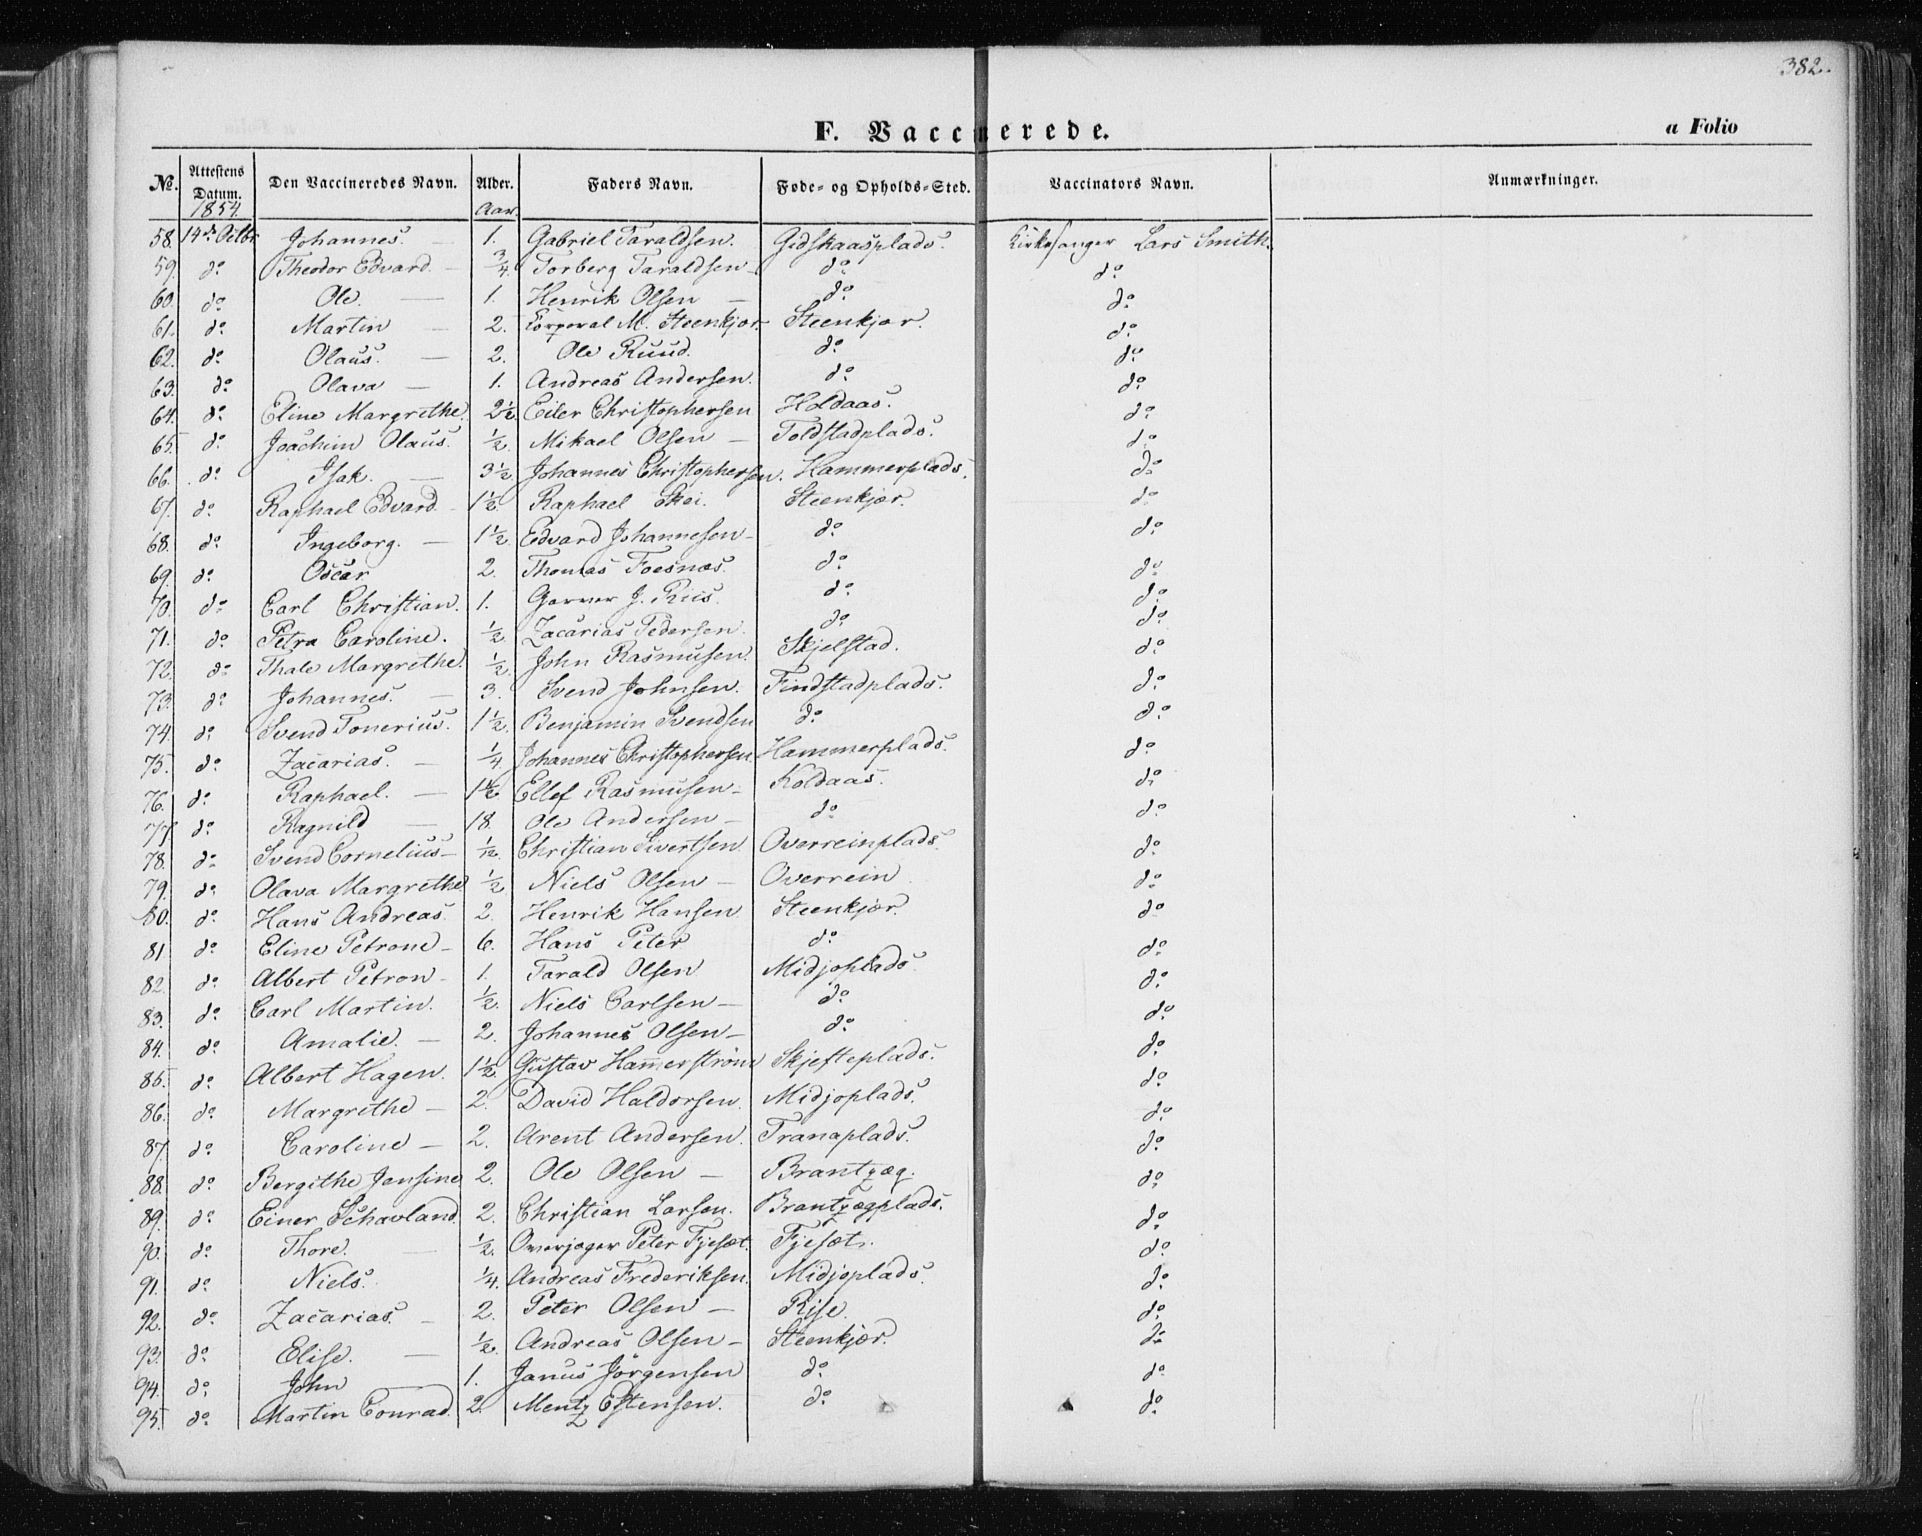 382.
F. Vaccinerede. a Folio
No. Attestens Datum. Den Vaccineredes Navn. Alder. Faders Navn. Føde- og Opholds-Sted. Vaccinators Navn. Anmærkninger.
1854. Aar.
58. 14de Octbr Johannes. — 1. Gabriel Taraldsen. Gidskaasplads. Kirkesanger Lars Smith.
59. do Theodor Edvard. — 3/4. Torberg Taraldsen — do do
60. do Ole. — 1. Henrik Olsen — do do
61. do Martin — 2. Corporal M. Steenkjær. Steenkjær. do
62. do Olaus. — 2. Ole Ruud. do do
63. do Olava — 1. Andreas Andersen. do do
64. do Eline Margrethe. 2 1/2. Eiler Christophersen Holdaas. do
65. do Joachim Olaus. 1/2. Mikael Olsen — Toldstadplads. do
66. do Isak. — 3 1/2 Johannes Christophersen. Hammerplads. do
67. do Raphael Edvard — 1 1/2. Raphael Skei. Steenkjær. do
68. do Ingeborg. — 1 1/2 Edvard Johannesen — do do
69. do Oscar 2. Thomas Foesnæs. do do
70. do Carl Christian. 1. Garver J. Riis. do do
71. do Petra Caroline. 1/2. Zacarias Pedersen. do do
72. do Thale Margrethe. 1/2. John Rasmusen. Skjelstad. do
73. do Johannes. — 3. Svend Johnsen. Findstadplads. do
74. do Svend Tonerius. 1 1/2. Benjamin Svendsen do do
75. do Zacarias. — 1/4. Johannes Christophersen Hammerplads. do
76. do Raphael. — 1 1/2. Ellef Rasmusen — Holdaas. do
77 do Ragnild — 18. Ole Andersen — do do
78. do Svend Cornelius — 1/12. Christian Sivertsen Overreinplads. do
79. do Olava Margrethe 1/2 Niels Olsen — Overrein do
80. do Hans Andreas. 2. Henrik Hansen Steenkjær. do
81 do Eline Petrone — 6. Hans Peter do do
82. do Albert Petron — 1. Tarald Olsen Midjoplads. do
83. do Carl Martin. 1/2. Niels Carlsen — do do
84. do Amalie. — 2. Johannes Olsen — do do
85. do Albert Hagen. 1 1/2. Gustav Hammerstrøm Skjefteplads. do
86. do Margrethe — 2. David Haldorsen. Midjoplads. do
87 do Caroline — 2. Arent Andersen. Tranaplads. do
88. do Bergithe Jensine 2. Ole Olsen — Brantzæg. do
89. do Einer Schavland. 2. Christian Larsen. Brantzægplads. do
90. do Thore. — 1/2. Overjæger Peter Fjesæt. Fjesæt. do
91. do Niels. 1/4. Andreas Frederiksen. Midjoplads. do
92. do Zacarias. — 2. Peter Olsen — Rise. do
93. do Elise. — 1/2. Andreas Olsen — Steenkjær. do
94. do John — 1. Janus Jörgensen do do
95. do Martin Conrad. 2. Mentz Estensen. do do